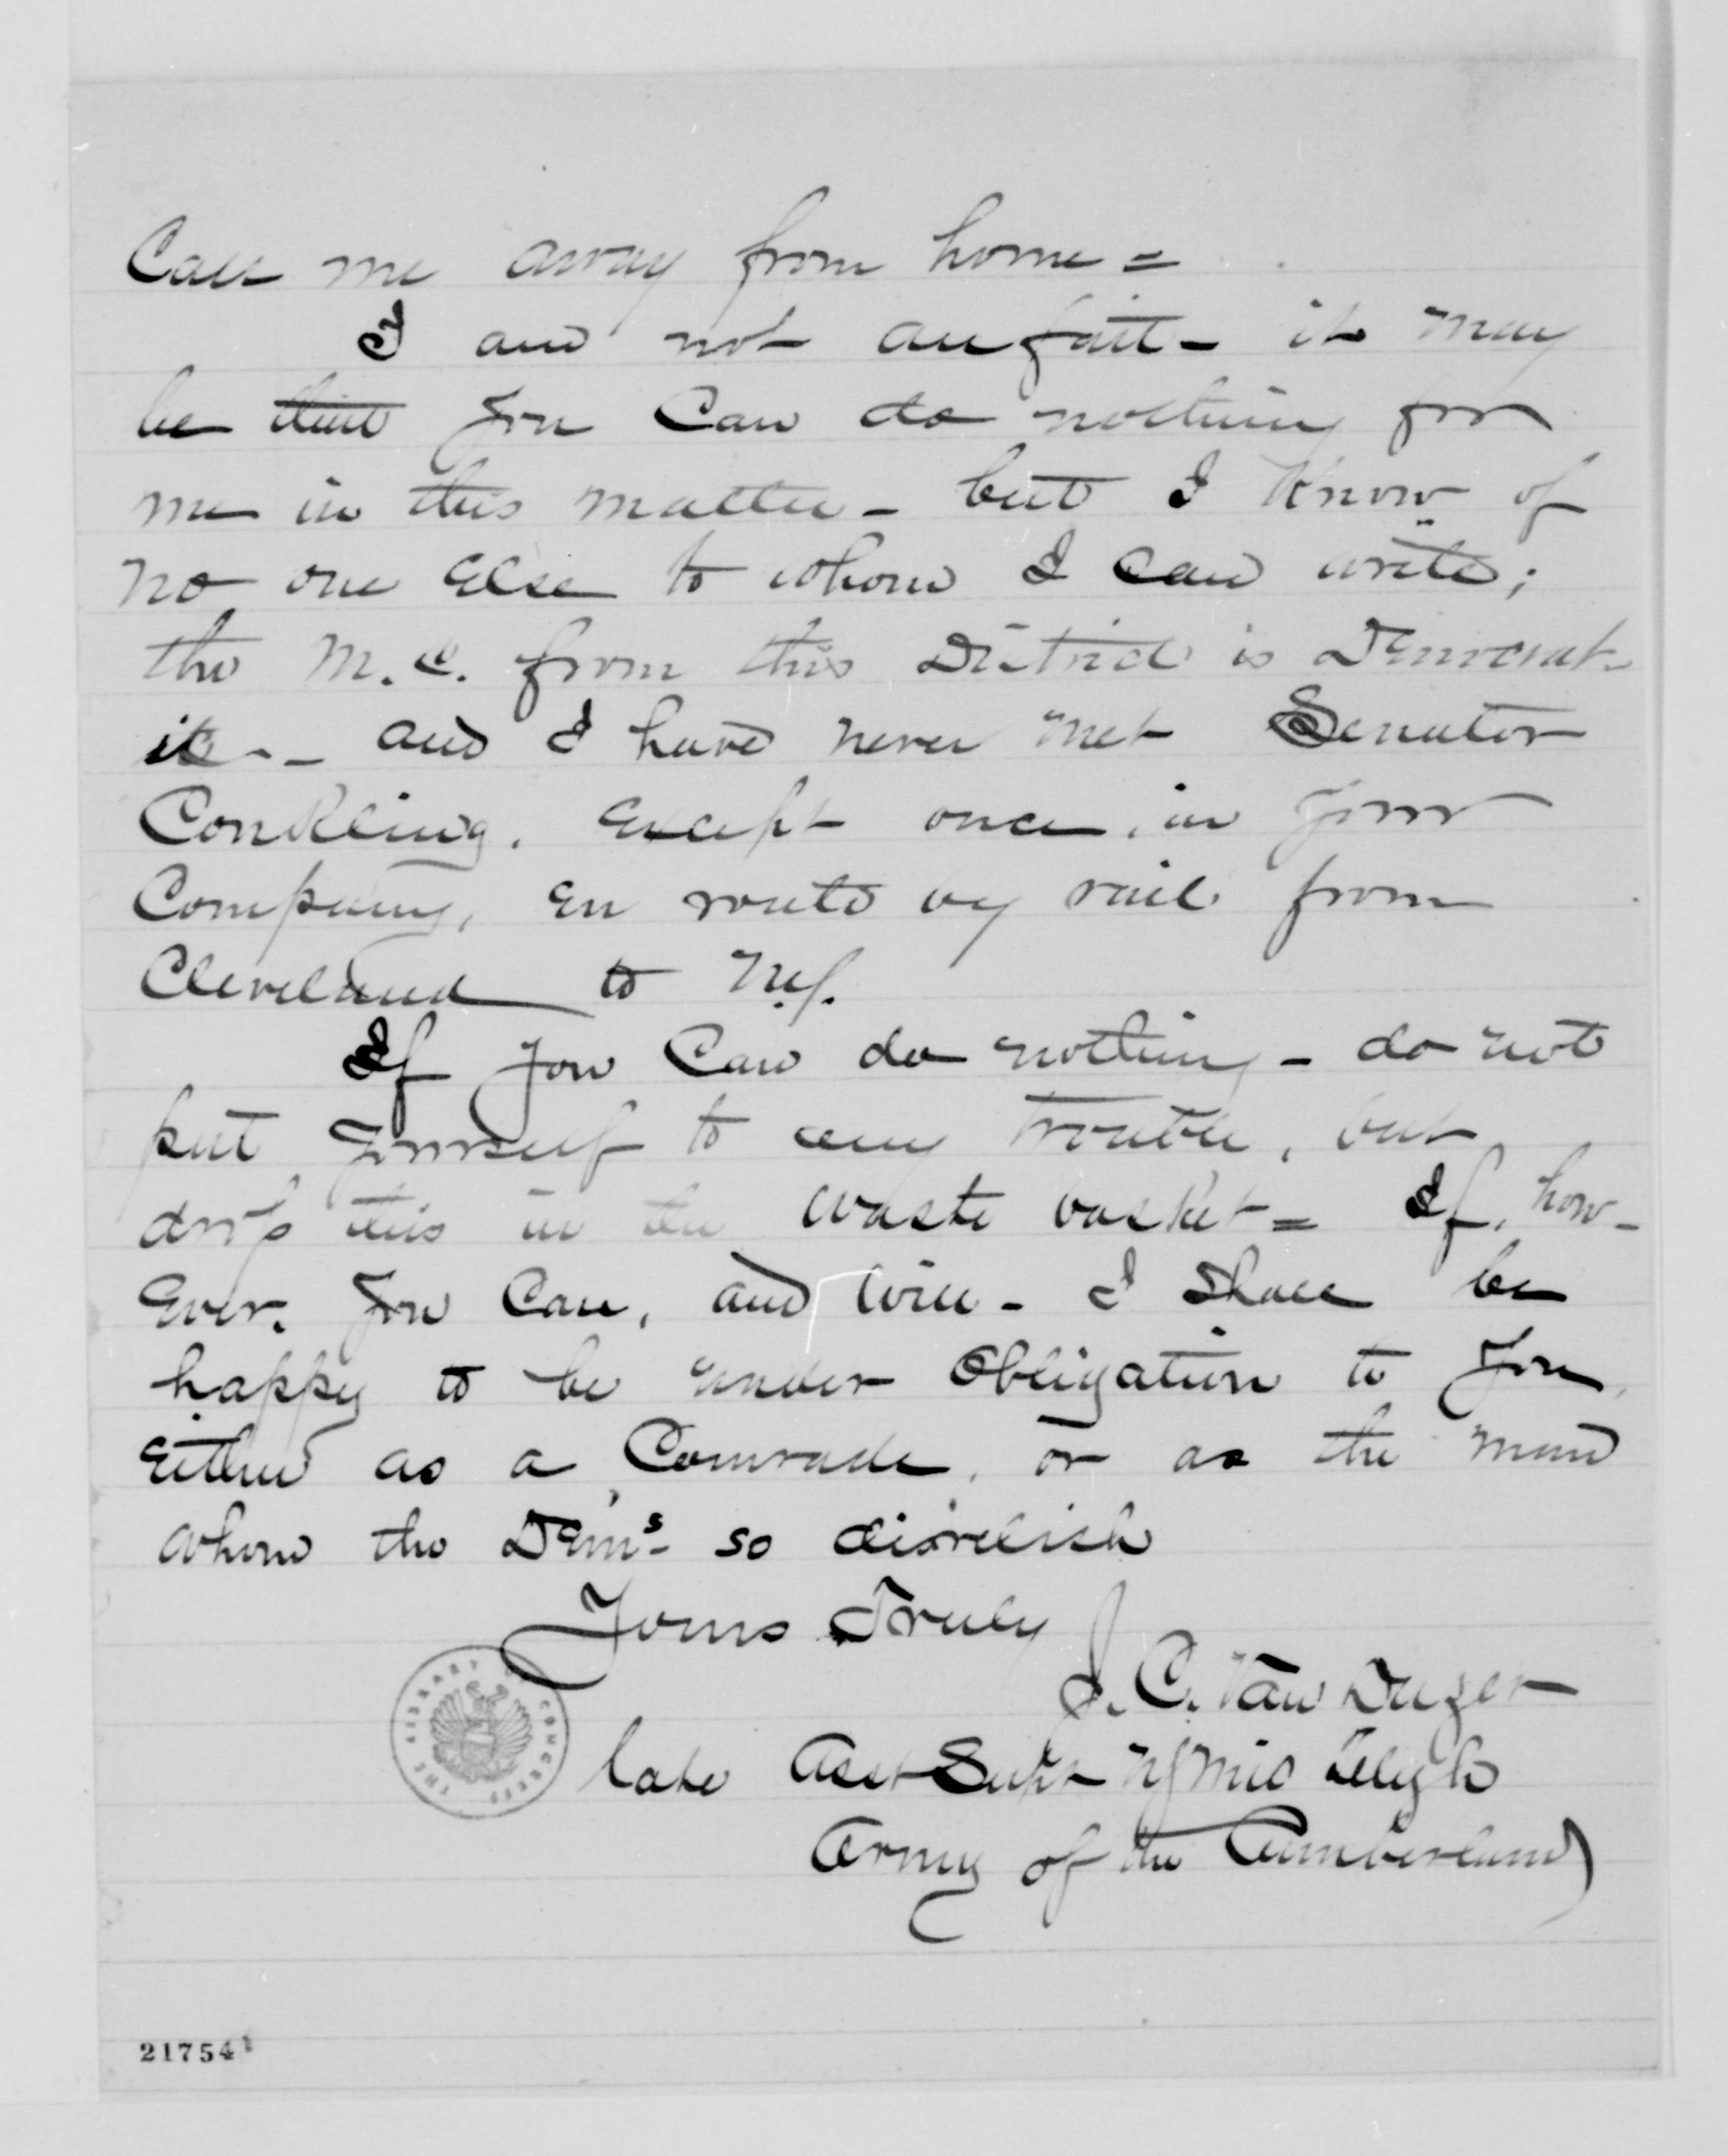 Call me away from home =
I am not au fait - it may
be that you can do nothing for
me in this matter - but I know of
no one else to whom I can write;
the M.C. from this District is Democrat-
ic - - and I have never met Senator
Conkling, except once, in your
Company, en route by rail from
Cleveland to N.Y.
If you can do nothing - do not
put yourself to any trouble, but
drop this in the waste basket = If, how-
ever, you can, and will - I shall be
happy to be under obligation to you,
either as a Comrade, or as the man
whom the Dems so disrelish
Yours Truly
J. C. Van Duzer
late Asst Supt US Mil Telgh
Army of the Cumberland
THE LIBRARY OF CONGRESS
21754